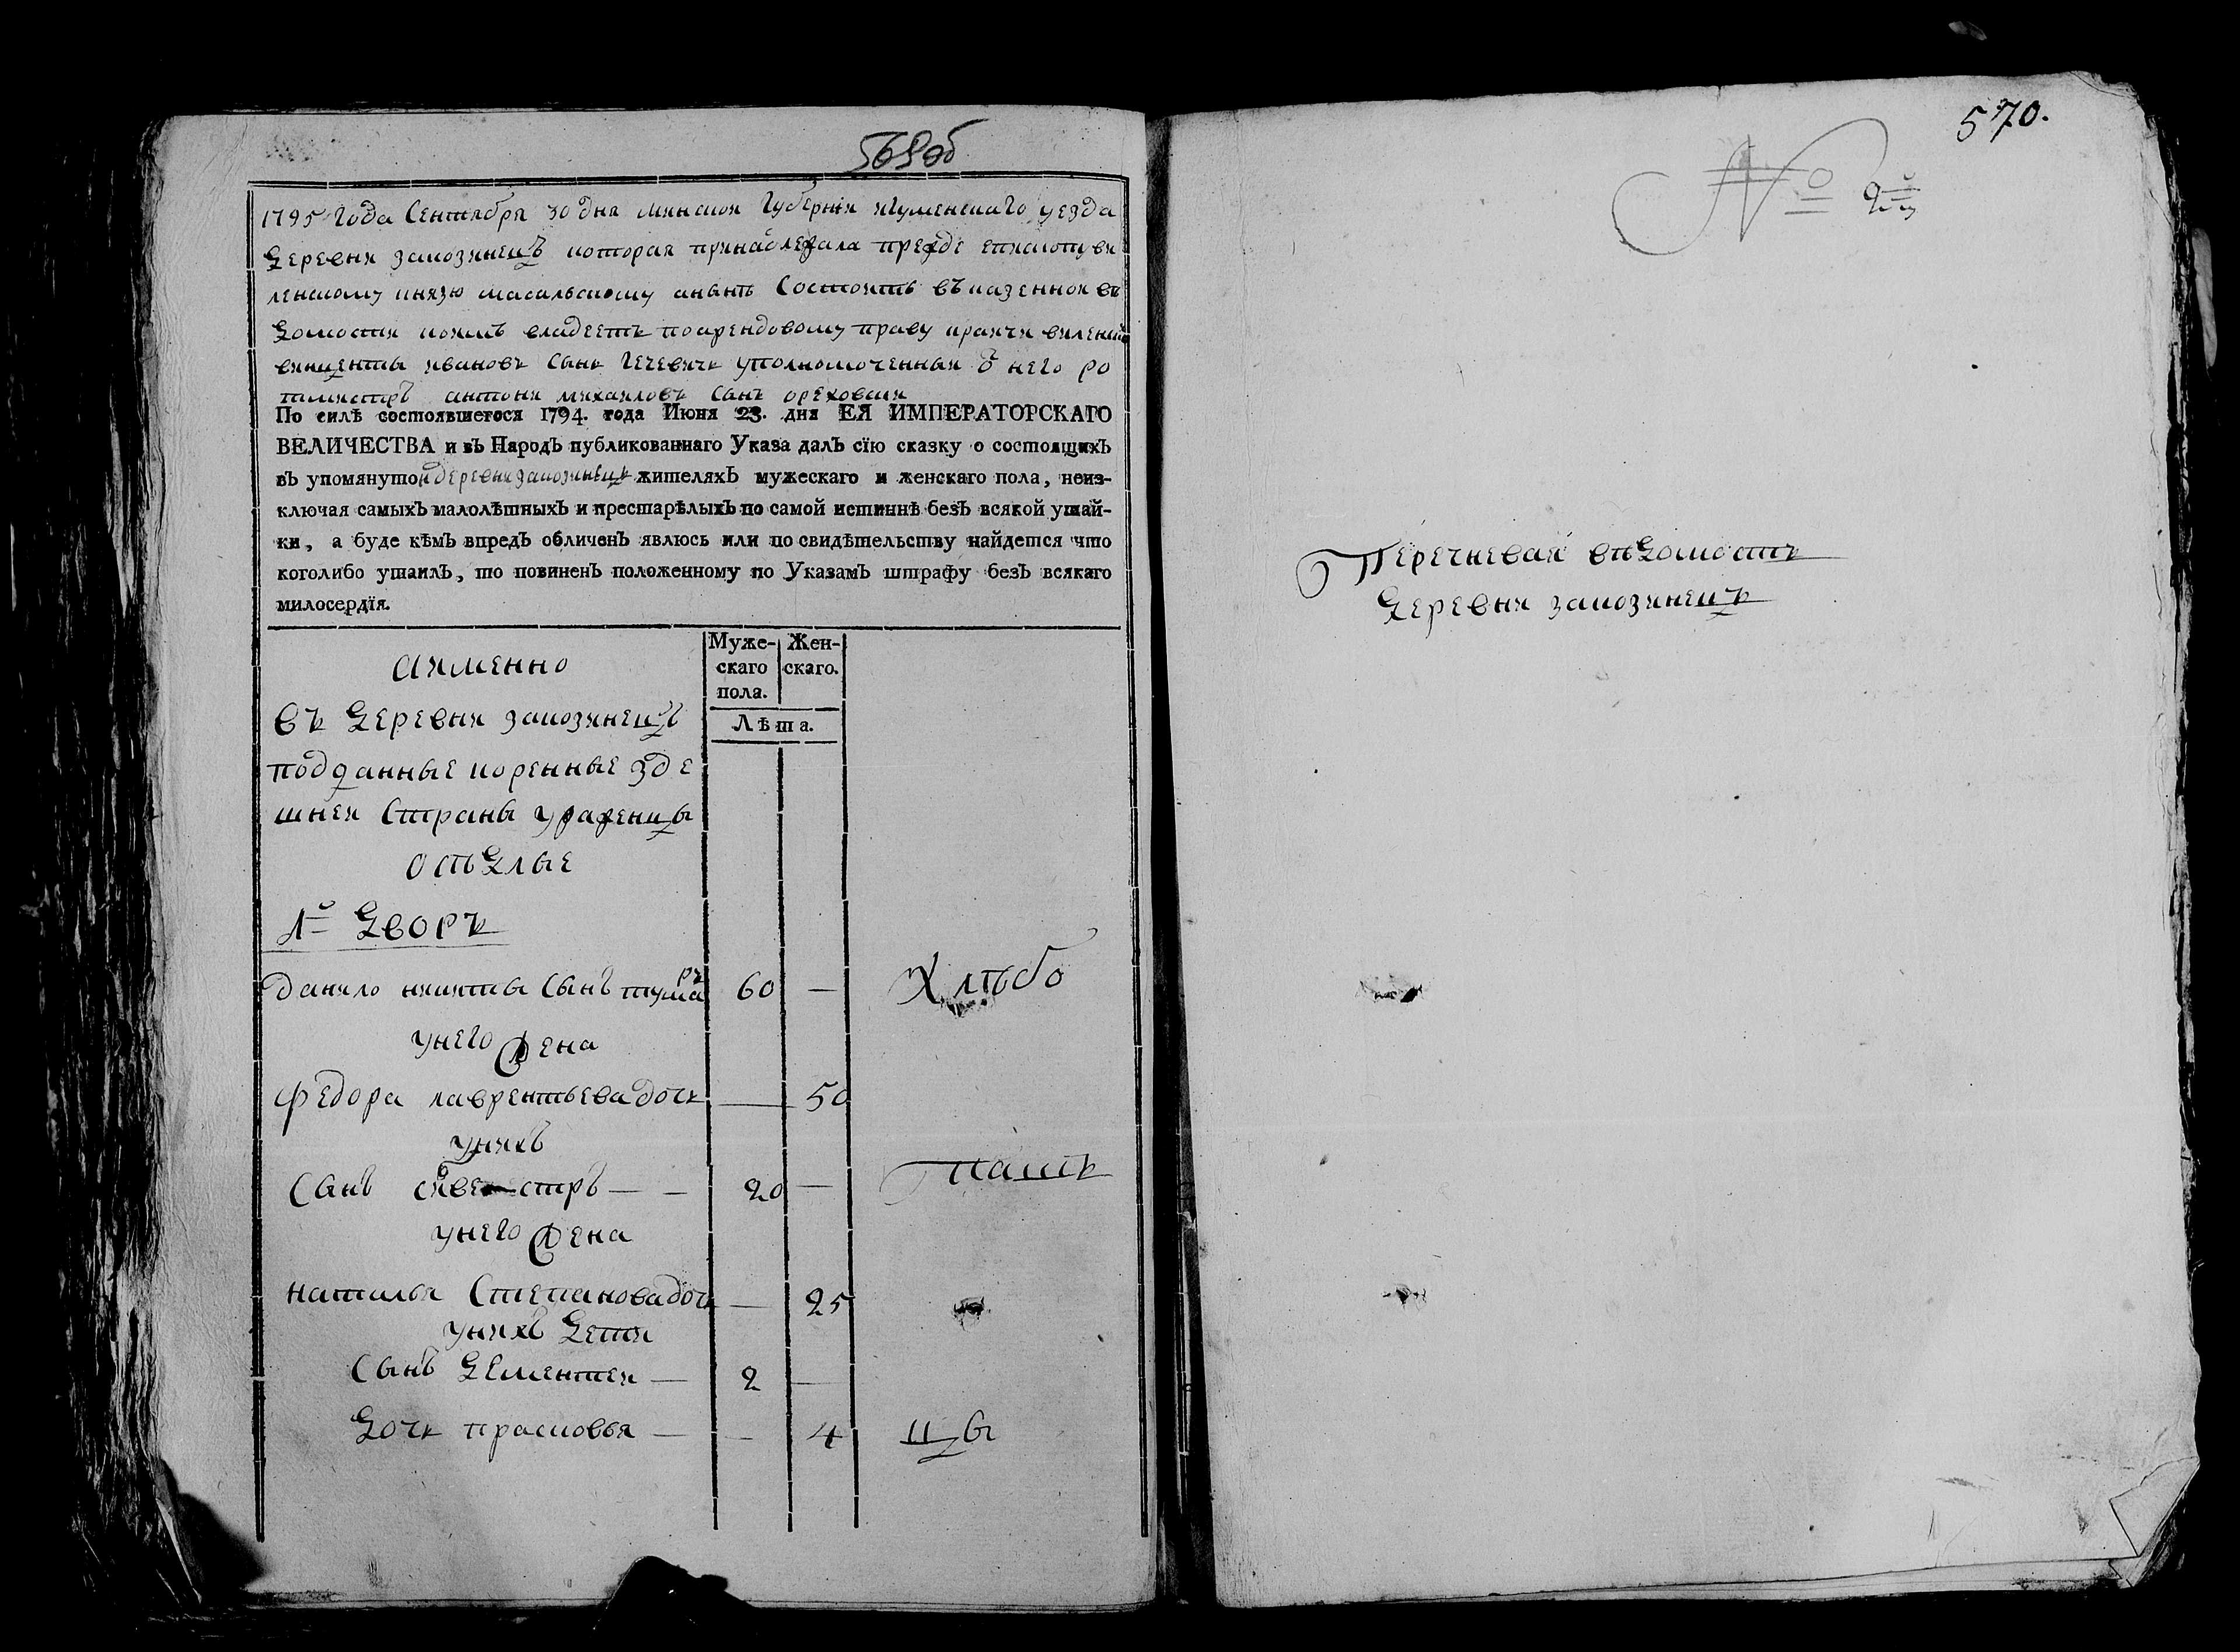 569об
1795 года Сентября 30 дня минской губерний игуменскаго уезда
деревни закозинецъ которая принадлежала прежде епископу ви
ленскому князю масальскому анынъ Состоитъ въ казенной въ
домости коимъ владеетъ поарендовому праву краичи виленски
винценты ивановъ Сынъ гечевичъ уполномоченный о него ро
тмистръ антони михаиловъ Сынъ ореховски
По силѣ состоявшегося 1794. года Июня 23. дня ЕЯ ИМПЕРАТОРСКАГО
ВЕЛИЧЕСТВА и въ Народъ публикованнаго Указа далъ сїю сказку о состоящихъ
въ упомянутой деревни закозинецъ жителяхъ мужескаго и женскаго пола, неиз-
ключая самыхъ малолѣтныхъ и престарѣлыхъ по самой истиннѣ безъ всякой утай-
ки, а буде кѣмъ впредъ обличенъ явлюсь или по свидѣтельству найдется что
коголибо утаилъ, то повиненъ положенному по Указамъ штрафу безъ всякаго
милосердїя.
аименно
Муже-
скаго
пола.
Жен-
скаго.
Лѣта.
въ деревни закозинецъ
подданные коренные зде
шней Страны ураженцы
оседлые
1й дворъ
данило никиты Сынъ 60 — Хлѣбо
унего жена
федора лаврентьева дочь — 50
унихъ
Сынъ силвестръ — — 20 — пашъ
унего жена
наталья Степанова дочь — 25
унихъ дети
Сынъ дементей — 2 —
дочь прасковья — — 4 цы
570.
№ 2й
Перечневая вѣдомость
деревни закозинецъ